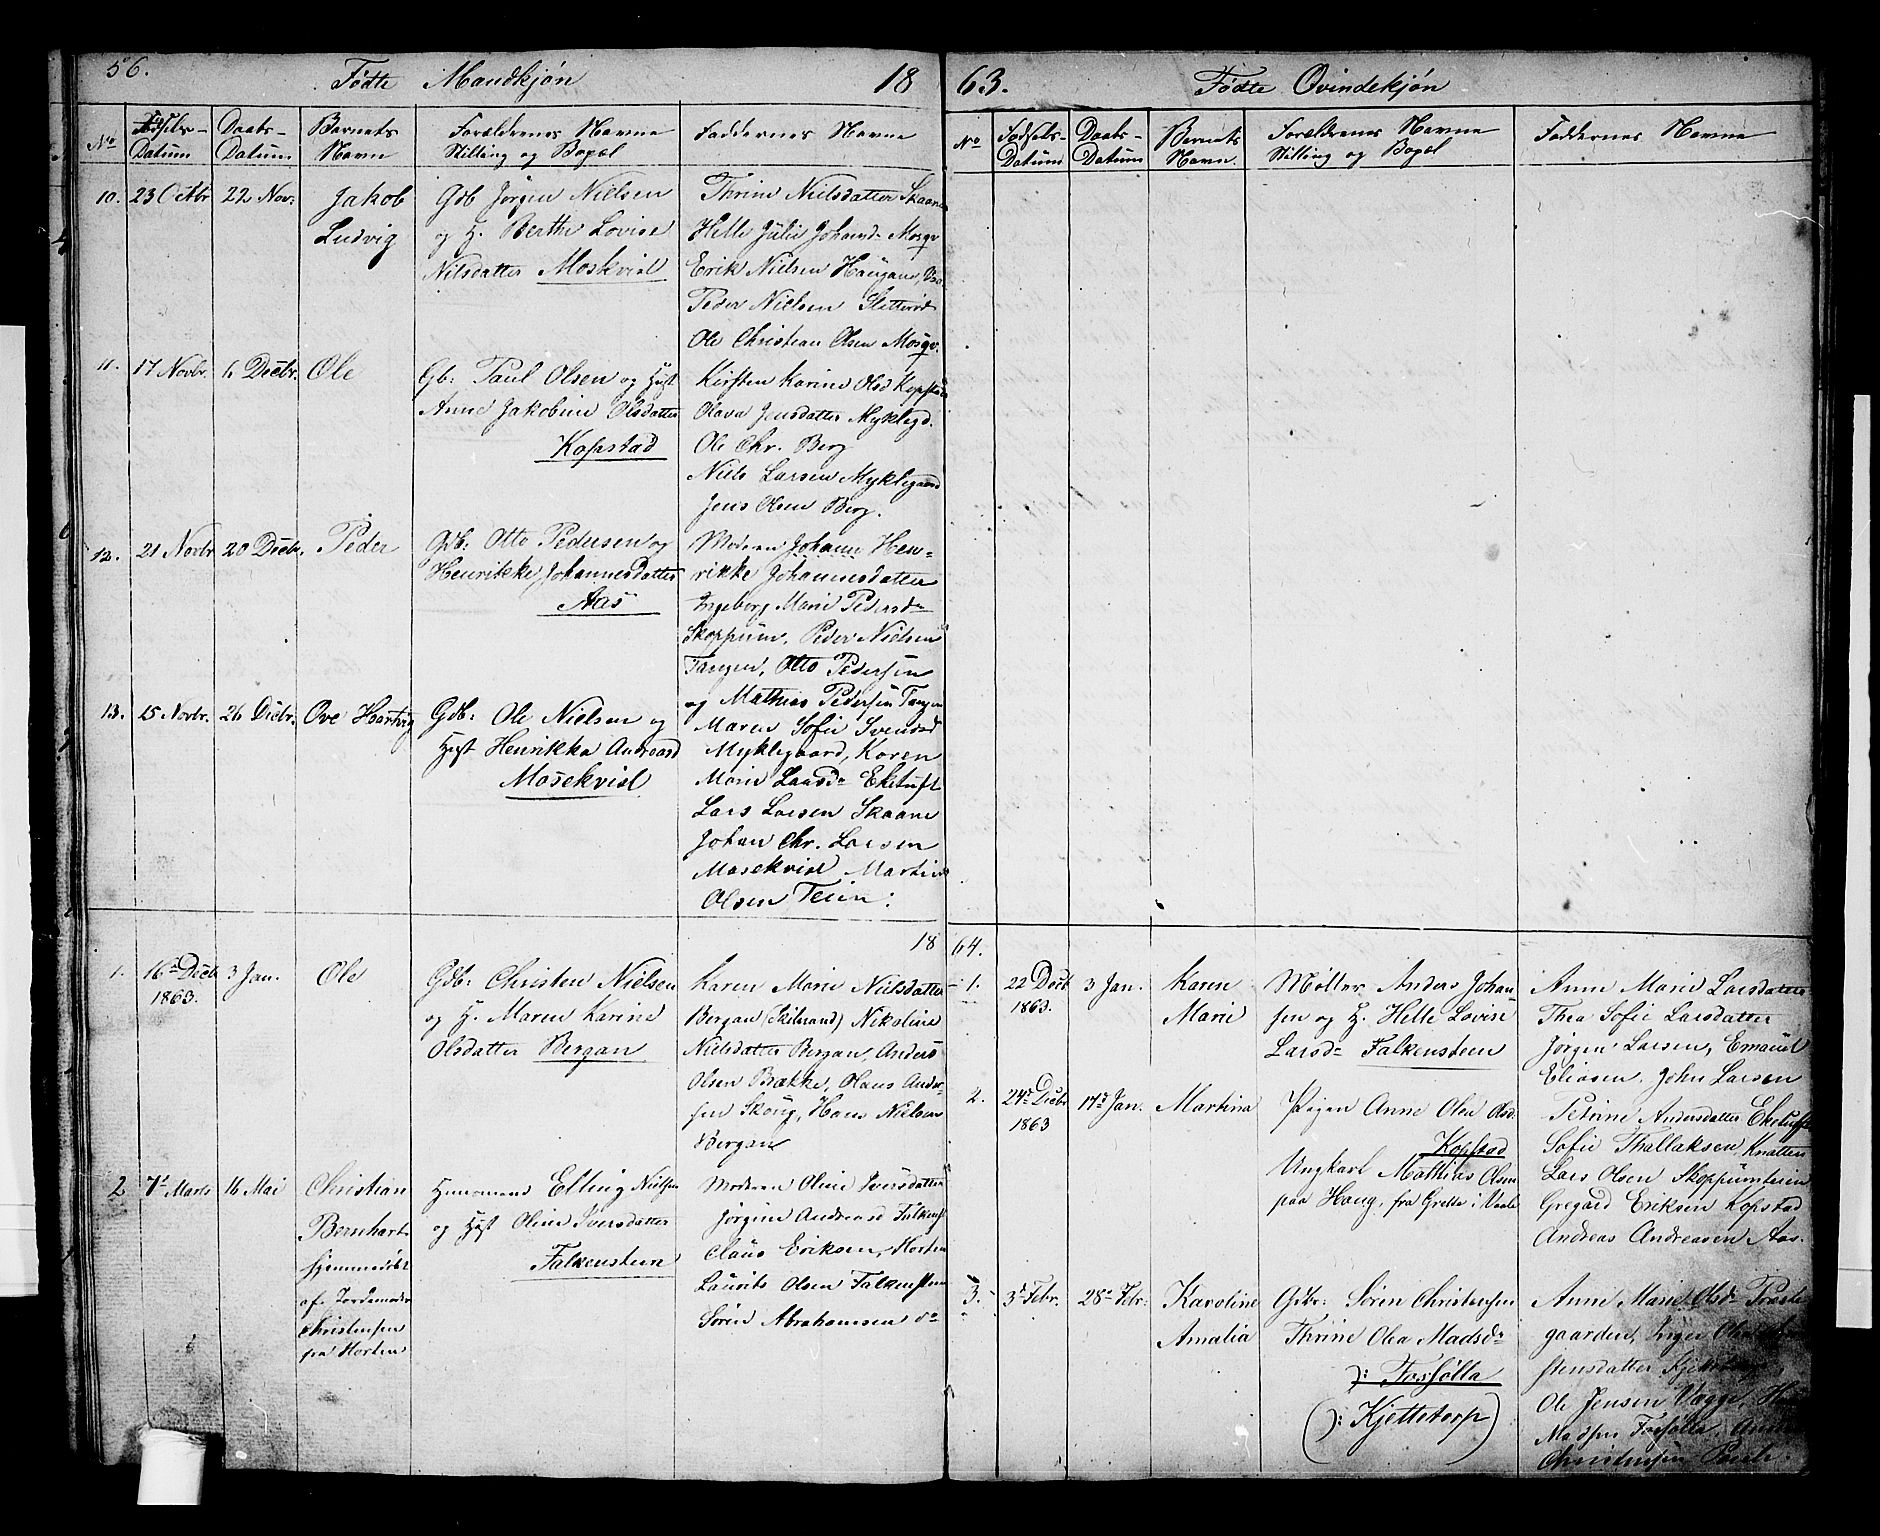 56.
Fødte Mandkjøn
18
No
Fødsels-
Datum
Daabs-
Datum.
Barnets
Navn
Forældrenes Navne
Stilling og Bopæl
Faddernes Navne
10.
23 Octbr
22 Nov:
Jakob
Ludvig
Gdb Jørgen Nielsen
og H. Berthe Lovise
Nilsdatter Moskvisl
Thrine Nielsdatter Skaane
Helle Julie Johansd: Mosqv
Erik Nielsen Haugane,
Peder Nielsen
Ole Christian Olsen Mosqv.
11.
17 Novbr.
6 Decbr.
Ole
Gb: Paul Olsen og Hust
Anne Jakobine Olsdatter
Kopstad
Kirsten Karine Olsd Kopstad
Olava Jensdatter Myklegd.
Ole Chr. Berg
Niels Larsen Myklegaard
Jens Olsen Berg.
12.
21 Novbr
20 Decbr.
Peder
Gdb: Otto Pedersen og
Henrikke Johannesdatter
Aas
Moderen Johann Hen-
rikke Johannesdatter
Ingeborg Marie Pedersd-
Skoppum, Peder Nielsen
Tangen, Otto Pedersen
og Mathias Pedersen Tangen
13.
25 Novbr.
26 Decbr.
Ove Hartvig
Gdb: Ole Nielsen og
Hust Henrikka Andreasd
Mosekvisl
Maren Sofie Svendsd
Myklegaard, Karen
Marie Larsd- Eketuft
Lars Larsen Skaane
Johan Chr. Larsen
Mosekvisl Martin
Olsen Teien:
18
1.
16 Decb
1863.
3 Jan.
Ole
Gdb: Christen Nielsen
og H. Maren Karine
Olsdatter Bergan
Karen Marie Nielsdatter
Bergan (Skilsrand) Nikoline
Nielsdatter Bergan, Anders
Olsen Bække, Hans Ander-
sen Skoug, Hans Nielsen
Bergan
2
7 Marts
16 Mai
Christian
Bernhart
hjemmedøbt
af Jordemoder
Christensen
fra Horten
Huusmand Elling Nielsen
og Hust Oline Iversdatter
Falkensteen
Moderen Oline Iversdatter
Jørgine Andreasd Falkenst
Claus Eriksen, Horten
Laurits Olsen Falkensteen
Søren Abrahamsen do
63.
Fødte Qvindekjøn
No
Fødsels-
Datum
Daabs-
Datum
Barnets
Navn.
Forældrenes Navne
Stilling og Bopæl
Faddernes Navne
64.
1.
22 Decb
1863.
3 Jan.
Karen
Marie
Møller Anders Johan-
sen og H. Helle Lovise
Larsd- Falkensteen
Anne Marie Larsdatter
Thea Sofie Larsdatter
Jørgen Larsen, Emanuel
Eliasen, John Larsen
2.
24 Decbr
1863
17 Jan.
Martina
Pigen Anne Olea Olsd.
Kopstad
Ungkarl Mathias Olsen
paa Haug, fra Grette i Vaale
Petrine Andersdatter Eketuft
Sofie Thallaksen, Knatten
Lars Olsen Skoppumteien
Gregard Eriksen Kopstad
Andreas Andreasen Aas.
3.
3 Febr.
28 Febr:
Karoline
Amalia
Gdbr: Søren Christensen
Thrine Olea Madsd-
): Fossølta
(): Kjettetorp)
Anne Marie Olsd- Præste
gaarden, Inger Olea
stensdatter
Ole Jensen Vægge,
Madsen Fossølta,
Christensen